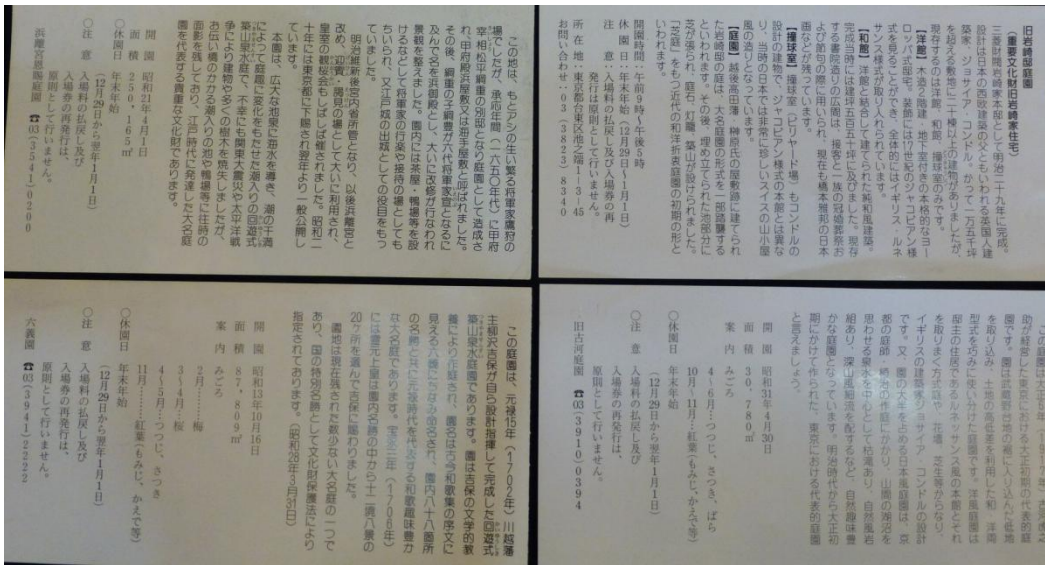 旧岩崎邸庭園
(重要文化財旧岩崎家住宅)
三菱財閥岩崎家本邸として明治二十九年に完成。
設計は日本の西欧建築の父ともいわれる英国人建
築家、ジョサイア・コンドル。かって一万五千坪
を超える敷地に二十棟以上の建物がありましたが、
現存するのは洋館、和館、撞球室のみです。
【洋館】木造2階建・地下室付きの本格的なヨー
ロッパ式邸宅。装飾には17世紀のジャコビアン様
式を見ることができ、全体的にはイギリス・ルネ
サンス様式が取り入れられています。
【和館】洋館と結合して建てられた純和風建築。
完成当時には建坪五百五十坪に及びました。現存
する書院造りの広間は、接客と一族の冠婚葬祭お
よび節句の際に用いられ、現在も橋本雅邦の日本
画などが残っています。
【撞球室】撞球室(ビリヤード場)もコンドルの
設計の建物で、ジャコビアン様式の本館とは異な
り、当時の日本では非常に珍しいスイスの山小屋
風の造りとなっています。
【庭園】越後高田藩 榊原氏の屋敷跡に建てられ
た岩崎邸の庭は、大名庭園の形式を一部踏襲する
といわれます。その後、埋め立てられた池部分に
芝が張られ、庭石、灯籠、築山が設けられました。
「芝庭」をもつ近代の和洋折衷庭園の初期の形と
いわれます。
開園時間:午前9時~午後5時
休園日:年末年始(12月29日~1月1日)
注意:入場料の払い戻し及び入場券の再
発行は原則として行いません。
所在地:東京都台東区池之端1-3-45
お問い合わせ:03(3823)8340
この地は、もとアシの生い繁る将軍家鷹狩の
場でしたが、承応年間(一六五〇年代)に甲府
宰相松平綱重の別邸となり庭園として造成さ
れ、甲府殿浜屋敷又は海手屋敷と呼ばれました。
その後、綱重の子綱豊が六代将軍家宣となるに
及んで名を浜御殿とし、大いに改修が行なわれ
景観を整えました。園内には茶屋・鴨場等を設
けるなどして将軍家の行楽や接待の場としても
ちいられ、又江戸城の出城としての役目をもっ
ていました。
明治維新後宮内省所管となり、以後浜離宮と
改め、迎賓・賜見の場として大いに利用され、
皇室の観桜会もしばしば催されました。昭和二
十年には東京都に下賜され翌年より一般公開し
ています。
本園は、広大な池泉に海水を導き、潮の干満
によって庭趣に変化をもたせた潮入りの回遊式
築山泉水庭で、不幸にも関東大震災や太平洋戦
争により建物や多くの樹木を焼失しましたが、
お伝い橋のかかる潮入りの池や鴨場等に往時の
面影を残しており、江戸時代に発達した大名庭
園を代表する貴重な文化財であります。
開園 昭和21年4月1日
面積 250,165㎡
○休園日 年末年始
(12月29日から翌年1月1日)
○注意 入場料の払戻し及び
入場券の再発行は、
原則として行いません。
浜離宮恩賜庭園 ☎03(3541)0200
助が経営した東京における大正初期の代表的庭
園です。園は武蔵野台地の裾に入り込んだ低地
を取り込み、土地の高低差を利用した和、洋両
型式を巧みに使い分けた庭園です。洋風庭園は
邸主の住居であるルネッサンス風の本館とそれ
を取りまく方式庭、花壇、芝生等からなり、
イギリスの建築家ジョサイア コンドルの設計
です。又、園の大半を占める日本風庭園は、京
都の庭師、植治の作庭にかかり、山間の湖沼を
思わせる泉水を中心として枯滝あり、自然風岩
組あり、深山風渓流を配するなど、自然趣味豊
かな庭園となっています。明治時代から大正初
期にかけて作られた、東京における代表的庭園
と言えましょう。
開園 昭和31年4月30日
面積 30,780㎡
案内 みごろ
4~6月:つつじ、さつき、ばら
10月・11月:紅葉(もみじ、かえで等)
○休園日 年末年始
(12月29日から翌年1月1日)
○注意 入場料の払戻し及び
入場券の再発行は、
原則として行いません。
旧古河庭園 ☎03(3910)0394
この庭園は、元禄15年(1702年)川越藩
主柳沢吉保が自ら設計指揮して完成した回遊式
築山泉水庭園であります。園は吉保の文学的教
養により作庭され、園名は古今和歌集の序文に
見える六義にちなみ命名され、園内八十八箇所
の名勝と共に元禄時代を代表する和歌趣味豊か
な大名庭であります。宝永三年(1706年)
には霊元上皇は園内名勝の中から十二境八景の
20ヶ所を選んで吉保に賜わりました。
園地は現在残された数少ない大名庭の一つで
あり、国の特別名勝として文化財保護法により
指定されております。(昭和28年3月31日)
開園 昭和13年10月16日
面積 87,809㎡
案内 みごろ
2月……梅
3~4月…桜
4~5月:つつじ、さつき
11月……紅葉(もみじ、かえで等)
○休園日 年末年始
(12月29日から翌年1月1日)
○注意 入場料の払戻し及び
入場券の再発行は、
原則として行いません。
六義園 ☎03(3941)2222